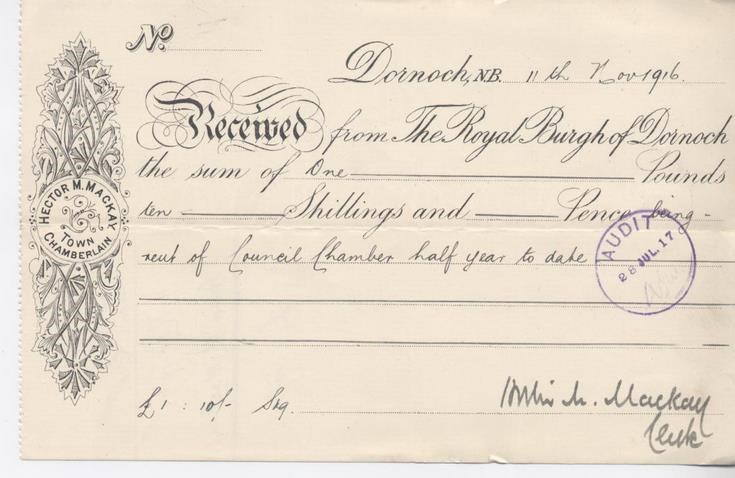 No.
Dornoch, N.B. 11th Nov 1916.
Received from The Royal Burgh of Dornoch
the sum of One Pounds
ten Shillings and Pence being
rent of Council Chamber half year to date
HECTOR M. MACKAY
TOWN
CHAMBERLAIN
AUDIT
28 JUL. 17
£1 : 10/- Stg.
M. Mackay
Clerk